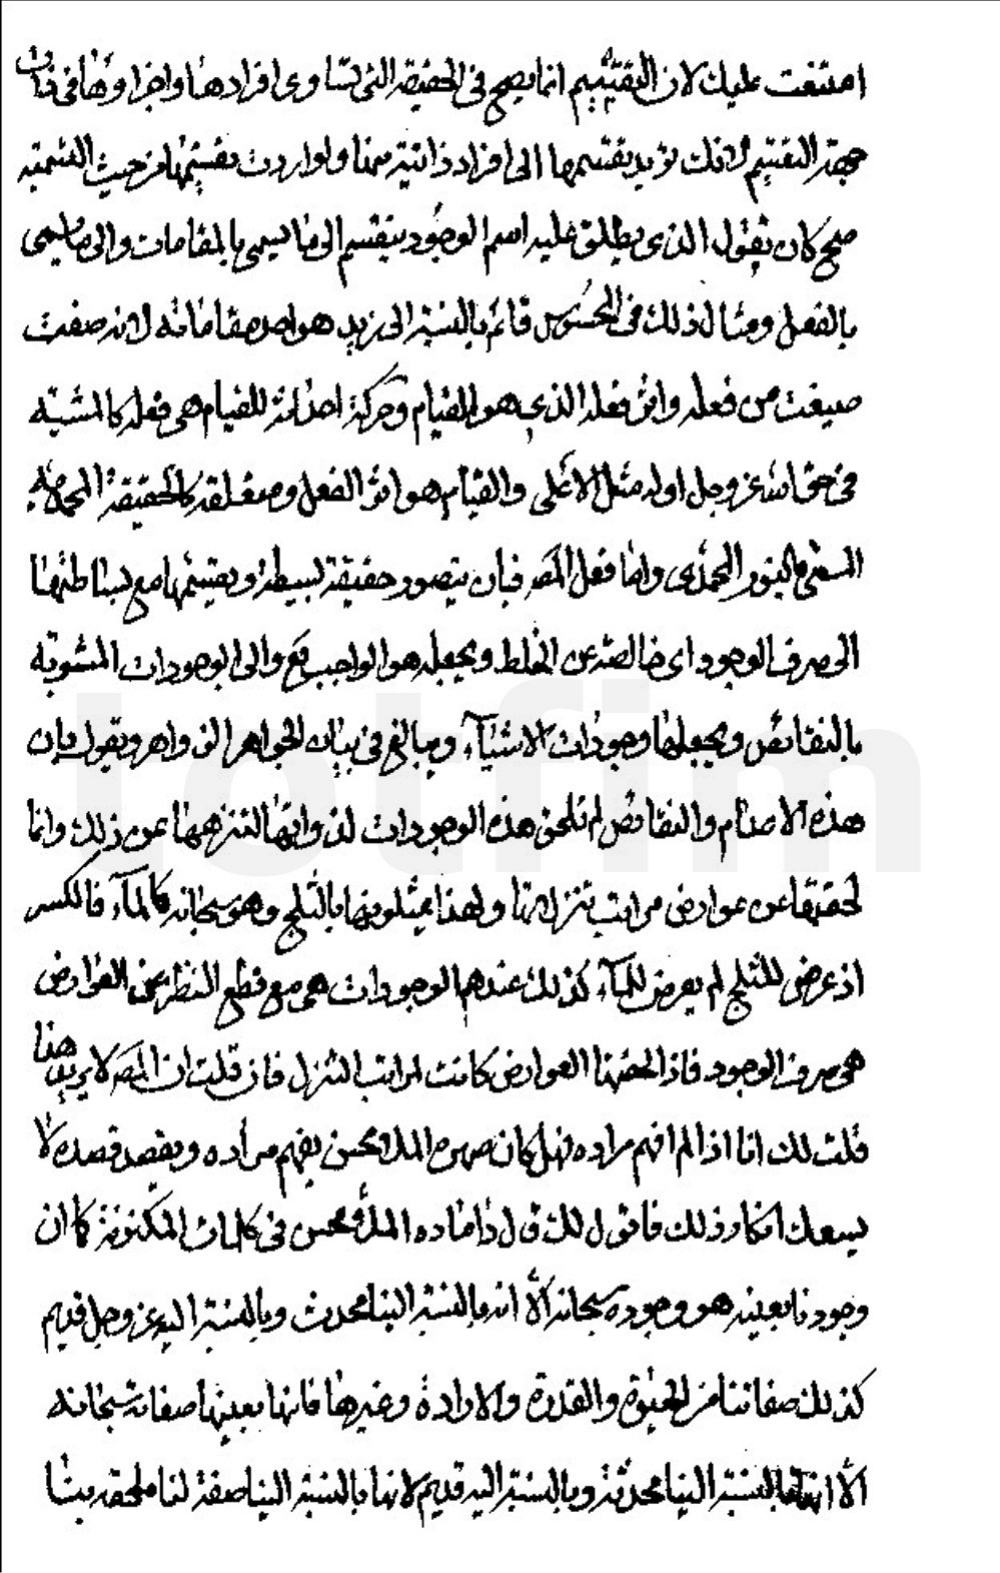 امتنعت عليك لان التقسيم انما يصح في الحقيقة التي تساوى افرادها واجزاؤها في ذات
جهة التقسيم لانك تريد تقسيمها الى افراد ذاتية منها ولو اردت تقسيمها من حيث التسمية
صح كان تقول الذى يطلق عليه اسم الوجود ينقسم الى ما يسمى بالمقامات والى ما يسمى
بالفعل ومثال ذلك في المحسوس قائم بالنسبة الى زيد هو احد مقاماته لانه صفت
صيغت من فعله واثر فعله الذي هو القيام وحركة احداثه للقيام هي فعله كالمشية
في حق الله عز وجل وله مثل الاعلى والقيام هو اثر الفعل ومتعلقه كالحقيقة المحمدية
المسمى بالنور المحمدى واما فعل المص فبان يتصور حقيقة بسيطة ويقسمها مع بساطتها
الى صرف الوجود اى خالصه عن الخلط ويجعله هو الواجب تع والى الوجودات المشوبة
بالنقائص ويجعلها وجودات الاشيآء ويبالغ في بيان الجواهر الزواهر ويقول بان
هذه الاعدام والنقائص لم تلحق هذه الوجودات لذواتها لتنزهها عن ذلك وانما
لحقتها عن عوارض مراتب تنزلاتها ولهذا يمثلونها بالثلج وهو سبحانه كالمآء فالكسر
اذ عرض للثلج لم يعرض للمآء كذلك عندهم الوجودات هي مع قطع النظر عن العوارض
هي صرف الوجود فاذا لحقتها العوارض كانت لمراتب التنزل فان قلت ان المص لا يريد هذا
قلت لك انا اذا لم افهم مراده فهل كان صهره الملا محسن يفهم مراده ويقصد قصده لا
يسعك انكار ذلك فاقول لك قال داماده الملا محسن في كلمات المكنونة كما ان
وجودنا بعينه هو وجوده سبحانه الا انه بالنسبة الينا محدث وبالنسبة اليه عز وجل قديم
كذلك صفاتنا من الحيوة والقدرة والارادة وغيرها فانها بعينها صفاته سبحانه
الا انها بالنسبة الينا محدثة وبالنسبة اليه قديم لانها بالنسبة الينا صفة لنا ملحقه بنا